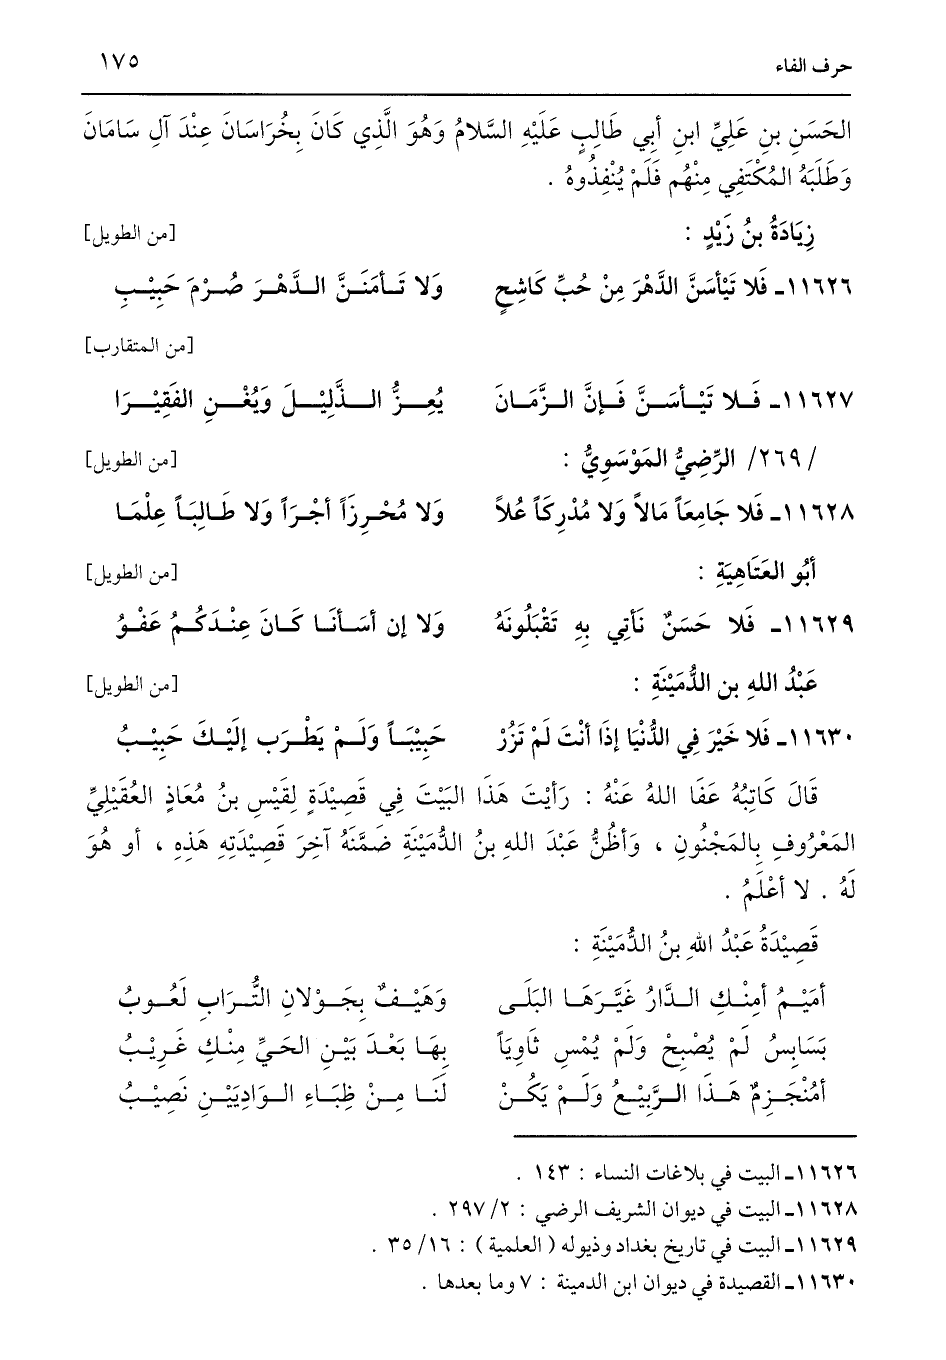 حرف الفاء ١٧٥
الحَسَنِ بنِ عَلِيِّ ابنِ أبي طَالِبٍ عَلَيْهِ السَّلامُ وَهُوَ الَّذِي كَانَ بِخُرَاسَانَ عِنْدَ آلِ سَامَانَ
وَطَلَبَهُ المُكْتَفِي مِنْهُم فَلَمْ يُنْفِذُوهُ .
زِيَادَةُ بنُ زَيْدٍ : [من الطويل]
١١٦٢٦ـ فَلا تَيْأسَنَّ الدَّهْرَ مِنْ حُبِّ كَاشِحٍ وَلا تَـأمَنَـنَّ الـدَّهْـرَ صُـرْمَ حَبِيْـبِ
[من المتقارب]
١١٦٢٧ـ فَـلا تَيْـأسَـنَّ فَـإنَّ الـزَّمَـانَ يُعِـزُّ الـذَّلِيْـلَ وَيُغْـنِ الفَقِيْـرَا
/٢٦٩/ الرِّضِيُّ المَوْسَوِيُّ : [من الطويل]
١١٦٢٨ـ فَلا جَامِعَاً مَالاً وَلا مُدْرِكَاً عُلاً وَلا مُحْـرِزَاً أجْـرَاً وَلا طَـالِبَـاً عِلْمَـا
أبُو العَتَاهِيَةِ : [من الطويل]
١١٦٢٩ـ فَلا حَسَنٌ نَأتِي بِهِ تَقْبَلُونَهُ وَلا إن أسَـأنَـا كَـانَ عِنْـدَكُـمُ عَفْـوُ
عَبْدُ اللهِ بن الدُّمَيْنَةِ : [من الطويل]
١١٦٣٠ـ فَلا خَيْرَ فِي الدُّنْيَا إذَا أنْتَ لَمْ تَزُرْ حَبِيْبَـاً وَلَـمْ يَطْـرَب إلَيْـكَ حَبِيْـبُ
قَالَ كَاتِبُهُ عَفَا اللهُ عَنْهُ : رَأيْتَ هَذَا البَيْتَ فِي قَصِيْدَةٍ لِقَيْسِ بنُ مُعَاذٍ العُقَيْلِيِّ
المَعْرُوفِ بِالمَجْنُونِ ، وَأظُنُّ عَبْدَ اللهِ بنُ الدُّمَيْنَةِ ضَمَّنَهُ آخِرَ قَصِيْدَتِهِ هَذِهِ ، أو هُوَ
لَهُ . لا أعْلَمُ .
قَصِيْدَةُ عَبْدُ اللهِ بنُ الدُّمَيْنَةِ :
أمَيْـمُ أمِنْـكِ الـدَّارُ غَيَّـرَهَـا البَلَـى وَهَيْـفٌ بِجَـوْلانِ التُّـرَابِ لَعُـوبُ
بَسَابِسُ لَمْ يُصْبِحْ وَلَمْ يُمْسِ ثَاوِيَاً بِهَـا بَعْـدَ بَيْـنِ الحَـيِّ مِنْـكِ غَـرِيْـبُ
أمُنْخَـزِمٌ هَـذَا الـرَّبِيْـعُ وَلَـمْ يَكُـنْ لَنَـا مِـنْ ظِبَـاءِ الـوَادِيَيْـنِ نَصِيْـبُ
١١٦٢٦ـ البيت في بلاغات النساء : ١٤٣ .
١١٦٢٨ـ البيت في ديوان الشريف الرضي : ٢٩٧/٢ .
١١٦٢٩ـ البيت في تاريخ بغداد وذيوله ( العلمية ) : ٣٥/١٦ .
١١٦٣٠ـ القصيدة في ديوان ابن الدمينة : ٧ وما بعدها .